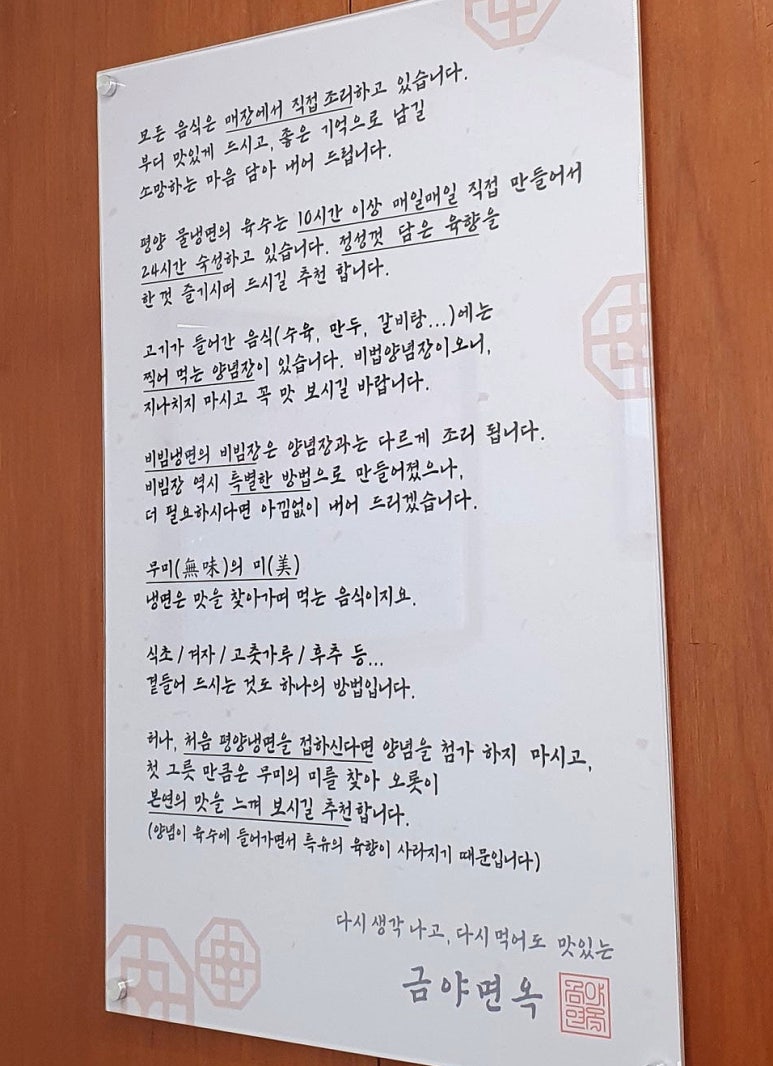 모든 음식은 매장에서 직접 조리하고 있습니다.
부디 맛있게 드시고, 좋은 기억으로 남길
소망하는 마음 담아 내어 드립니다.
평양 물냉면의 육수는 10시간 이상 매일매일 직접 만들어서
24시간 숙성하고 있습니다. 정성껏 담은 육향을
한껏 즐기시며 드시길 추천 합니다.
고기가 들어간 음식(수육, 만두, 갈비탕...)에는
찍어 먹는 양념장이 있습니다. 비법양념장이오니,
지나치지 마시고 꼭 맛 보시길 바랍니다.
비빔냉면의 비빔장은 양념장과는 다르게 조리 됩니다.
비빔장 역시 특별한 방법으로 만들어졌으나,
더 필요하시다면 아낌없이 내어 드리겠습니다.
무미(無味)의 미(美)
냉면은 맛을 찾아가며 먹는 음식이지요.
식초/겨자/고춧가루/후추 등...
곁들어 드시는 것도 하나의 방법입니다.
허나, 처음 평양냉면을 접하신다면 양념을 첨가 하지 마시고,
첫 그릇 만큼은 무미의 미를 찾아 오롯이
본연의 맛을 느껴 보시길 추천합니다.
(양념이 육수에 들어가면서 특유의 육향이 사라지기 때문입니다)
다시 생각 나고, 다시 먹어도 맛있는
금야면옥
금야
면옥